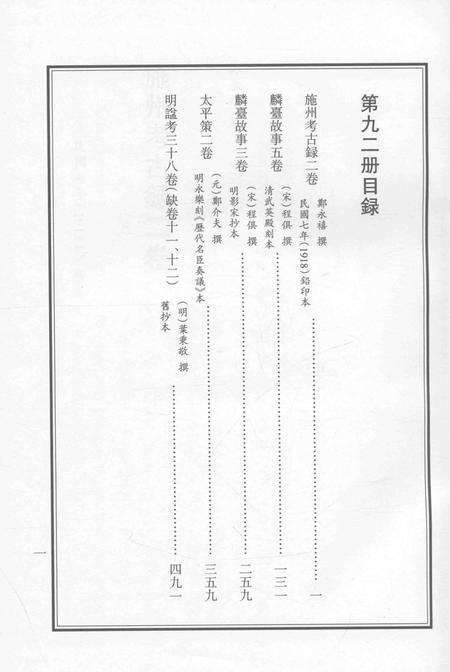 第九二册目録
施州考古録二卷
鄭永禧 撰
民國七年(1918)鉛印本
一
麟臺故事五卷
(宋)程俱 撰
清武英殿刻本
一三一
麟臺故事三卷
(宋)程俱 撰
明影宋抄本
二五九
太平策二卷
(元)鄭介夫 撰
明永樂刻《歷代名臣奏議》本
三五九
明謚考三十八卷(缺卷十一、十二)
(明)葉秉敬 撰
舊抄本
四九一
一